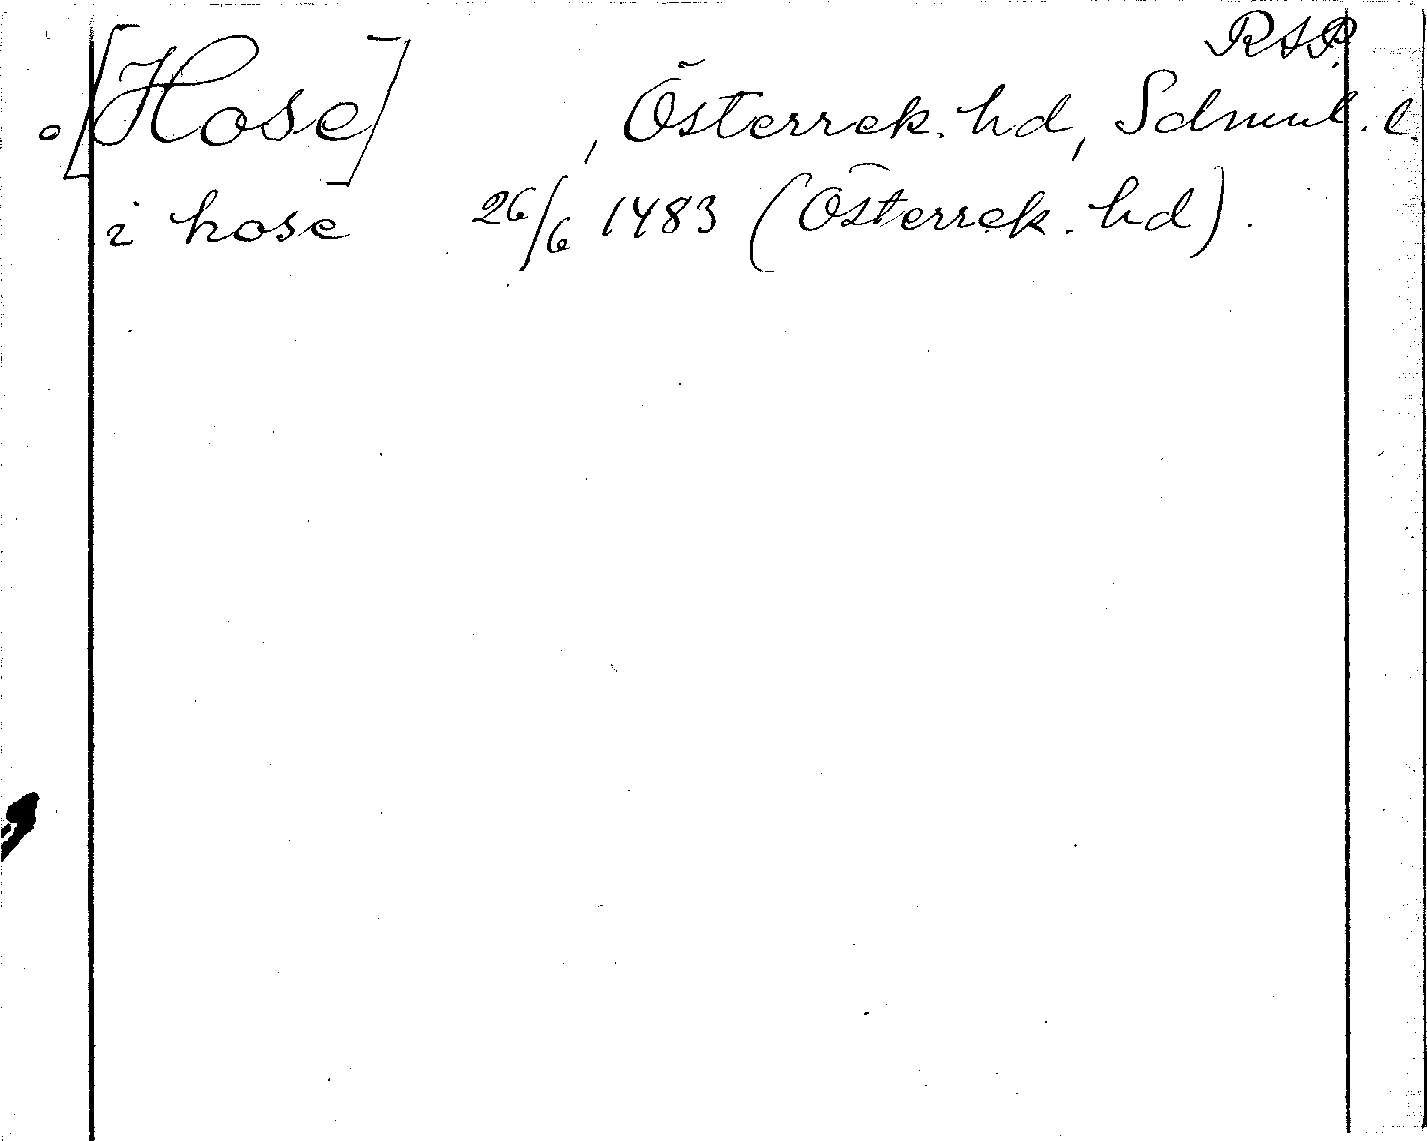 RAP.
[Hose] , Österrek. hd, Sdrml. l.
i hose 26/6 1483 (Österrek. hd).